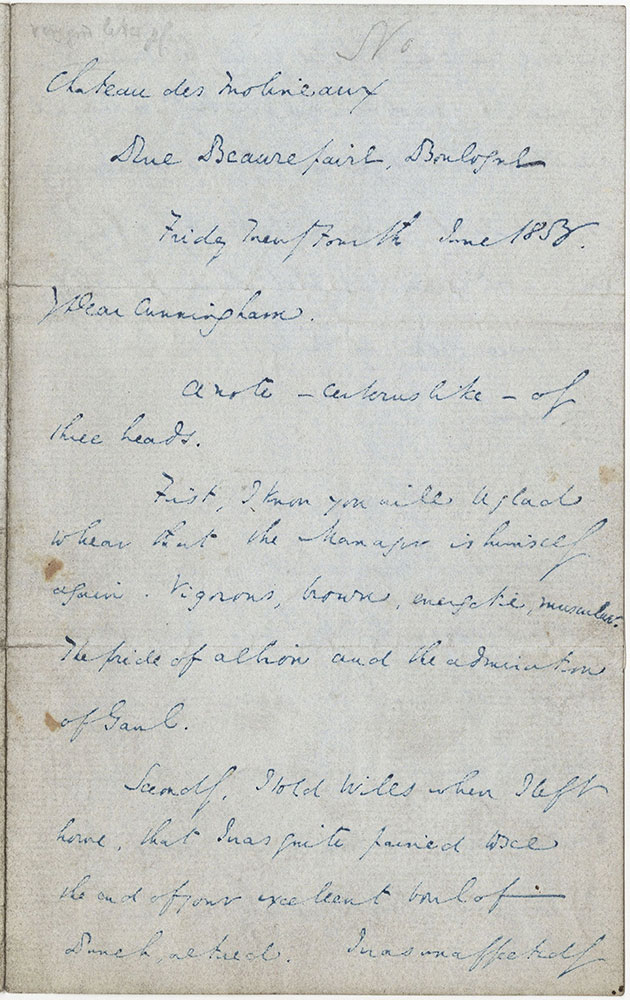 No
Chateau des Molineaux
Rue Beaurepaire, Boulogne
Friday Twenty Fourth June 1853.
My Dear Cunningham.
A note – Cerberus like – of
three heads.
First, I know you will be glad
to hear that the Manager is himself
again. Vigorous, brown, energetic, muscular.
The pride of Albion and the admiration
of Gaul.
Secondly, I told Wills when I left
home, that I was quite pained to see
the end of your excellent Bowl of
Punch, altered. I was unaffectedly